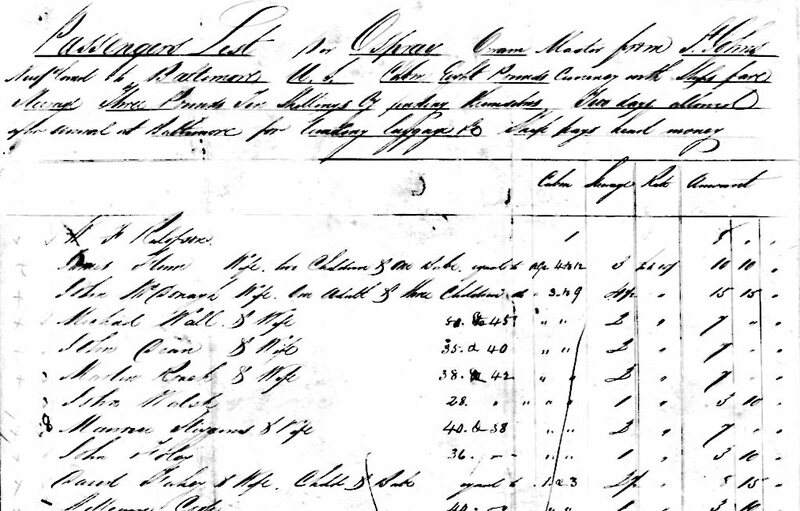 Passengers List per Ospray Oram Master from St Johns
Newfound to Baltimore U.S. Cabin Eight Pounds Currency with Ships fare
Steerage Three Pounds Ten Shillings Cy finding themselves, Two days allowed
after arrival at Baltimore for landing luggage &c Ship pays head money
Cabin Steerage Rate Amount
1 8 " "
James Flynn Wife, two Children & One Babe equal to age 4 to 12 3 10 10 "
John McDonagh Wife One Adult & three Children do " 3 to 9 15 15 "
Michael Wall & Wife 50 & 45 " " 2 " 7 " "
John Dean & Wife 35 & 40 " " 2 " 7 " "
Martin Roach & Wife 38 & 42 " " 2 " 7 " "
John Walsh 28 " " " " 1 " 3 10 "
& Wife 40 & 38 " " 2 " 7 " "
John Foley 36 - - " " 1 " 3 10 "
David Fahey & Wife, Child & Babe equal to 1 & 3 8 15 "
1 " 3 10